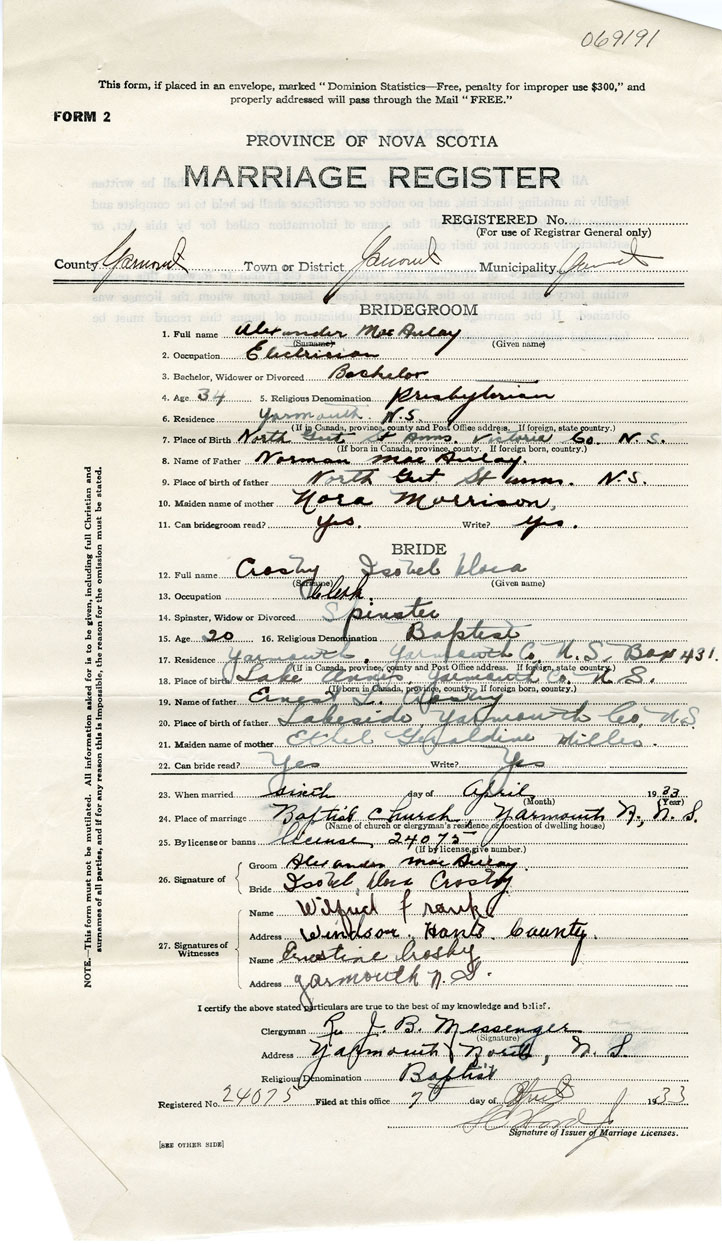 069191
This form, if placed in an envelope, marked "Dominion Statistics—Free, penalty for improper use $300," and
properly addressed will pass through the Mail "FREE."
FORM 2
PROVINCE OF NOVA SCOTIA
MARRIAGE REGISTER
REGISTERED No.
(For use of Registrar General only)
County Yarmouth Town or District Yarmouth Municipality
BRIDEGROOM
1. Full name Alexander MacAulay
(Surname) (Given name)
2. Occupation Electrician
3. Bachelor, Widower or Divorced Bachelor
4. Age 34 5. Religious Denomination Presbyterian
6. Residence Yarmouth N.S.
(If in Canada, province, county and Post Office address. If foreign, state country.)
7. Place of Birth North Gut St Anns. Victoria Co. N.S.
(If born in Canada, province, county. If foreign born, country.)
8. Name of Father Norman MacAulay.
9. Place of birth of father North Gut St Anns. N.S.
10. Maiden name of mother Nora Morrison,
11. Can bridegroom read? Yes. Write? Yes.
BRIDE
12. Full name Crosby Isobel Nora
(Surname) (Given name)
13. Occupation Clerk.
14. Spinster, Widow or Divorced Spinster
15. Age 20 16. Religious Denomination Baptist
17. Residence Yarmouth, Yarmouth Co, N.S. Box 431.
(If in Canada, province, county and Post Office address. If foreign, state country.)
18. Place of birth Lake Annis, Yarmouth Co. N.S.
(If born in Canada, province, county. If foreign born, country.)
19. Name of father Ernest L. Crosby
20. Place of birth of father Lakeside, Yarmouth Co, N.S
21. Maiden name of mother Ethel Geraldine
22. Can bride read? Yes Write? Yes
23. When married sixth day of April 1933
(Month) (Year)
24. Place of marriage Baptist Church, Yarmouth N, N.S.
(Name of church or clergyman's residence or location of dwelling house)
25. By license or banns license 24075
(If by license, give number.)
26. Signature of
Groom Alexander MacAulay
Bride Isobel Nora Crosby
27. Signatures of Witnesses
Name Wilfred Frank
Address Windsor. Hants County.
Name Ernestine Crosby
Address Yarmouth N.S.
I certify the above stated particulars are true to the best of my knowledge and belief.
Clergyman Rev J. B. Messenger
(Signature)
Address Yarmouth North, N.S.
Religious Denomination Baptist
Registered No. 24075 Filed at this office 7 day of April 1933
Signature of Issuer of Marriage Licenses.
[SEE OTHER SIDE]
NOTE.—This form must not be mutilated. All information asked for is to be given, including full Christian and
surnames of all parties, and if for any reason this is impossible, the reason for the omission must be stated.